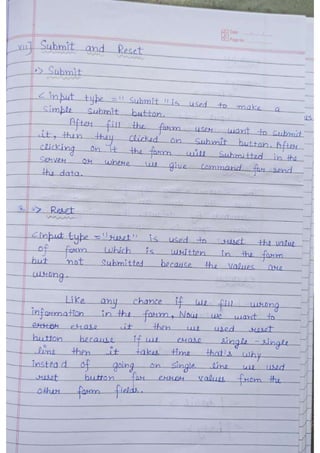 Date
Page No.
vii) Submit and Reset
→ Submit
< input type = " submit " is used to make a
simple submit button.
After fill the form user want to submit
it, then they clicked on submit button. After
clicking on it the form will submitted in the
server or where we give command for send
the data.
→ Reset
< input type = "reset" is used to reset the value
of form which is written in the form
but not submitted because the values are
wrong.
Like any chance if we fill wrong
information in the form, Now we want to
error erase it then we used reset
button because if we erase single - single
line then it takes time that's why
instead of going on single line we used
reset button for error values from the
other form fields.